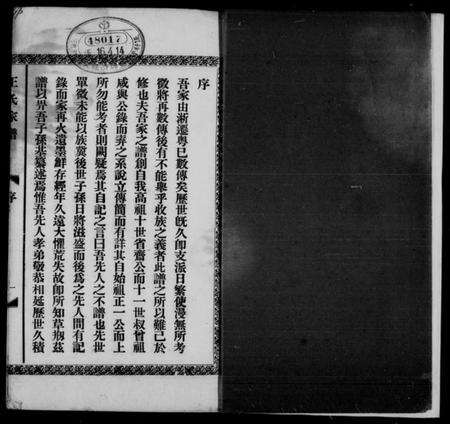 序
吾家由浙遷粤已數傳矣歷世既久卽支派日繁使漫無所考
徵將再數傳後有不能興乎收族之義者此譜之所以雖已於
修也夫吾家之譜創自我高祖十世省齋公而十一世叔曾祖
咸與公錄而弆之系說立傳簡而有詳其自始祖正一公而上
所勿能考者則闕疑焉其自記之言曰吾先人之不譜也先世
單微未能以族冀後世子孫日將滋盛而後爲之先人間有記
錄而家再火遺墨鮮存經年久遠大懼荒失故卽所知草剏茲
譜以畀吾子孫恭纂述焉惟吾先人孝弟敬恭相延歷世久積
氏家譜
序
一
48017
16.4.14